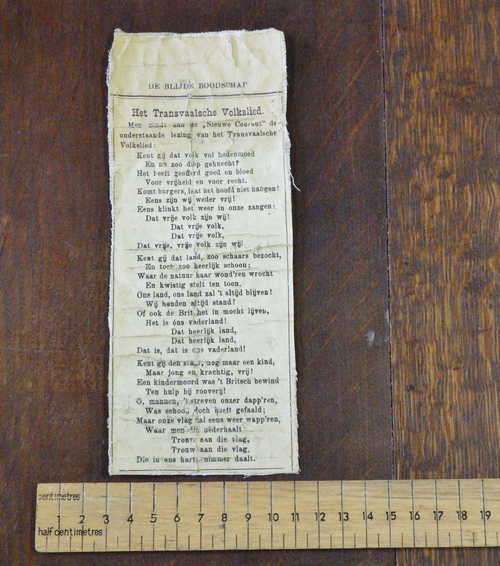 DE BLIJDE BOODSCHAP
Het Transvaalsche Volkslied.
Men zendt aan de „Nieuwe Courant" de
onderstaande lezing van het Transvaalsche
Volkslied:
Kent gij dat volk vol heldenmoed
En nu zoo diep geknecht?
Het heeft geofferd goed en bloed
Voor vrijheid en voor recht.
Komt burgers, laat het hoofd niet hangen!
Eens zijn wij weder vrij!
Eens klinkt het weer in onze zangen:
Dat vrije volk zijn wij!
Dat vrije volk,
Dat vrije volk,
Dat vrije, vrije volk zijn wij!
Kent gij dat land, zoo schaars bezocht,
En toch zoo heerlijk schoon;
Waar de natuur haar wond'ren wrocht
En kwistig stelt ten toon,
Ons land, ons land zal 't altijd blijven!
Wij houden altijd stand!
Of ook de Brit het in mocht lijven,
Het is óns vaderland!
Dat heerlijk land,
Dat heerlijk land,
Dat is, dat is ons vaderland!
Kent gij den staat, nog maar een kind,
Maar jong en krachtig, vrij!
Een kindermoord was 't Britsch bewind
Ten hulp bij rooverij!
O, mannen, 't streven onzer dapp'ren,
Was schoon, doch heeft gefaald;
Maar onze vlag zal eens weer wapp'ren,
Waar men die nederhaalt
Trouw aan die vlag,
Trouw aan die vlag,
Die in ons hart nimmer daalt.
centimetres
2 3 4 5 6 7 8 9 10 11 12 13 14 15 16 17 18 19
half centimetres